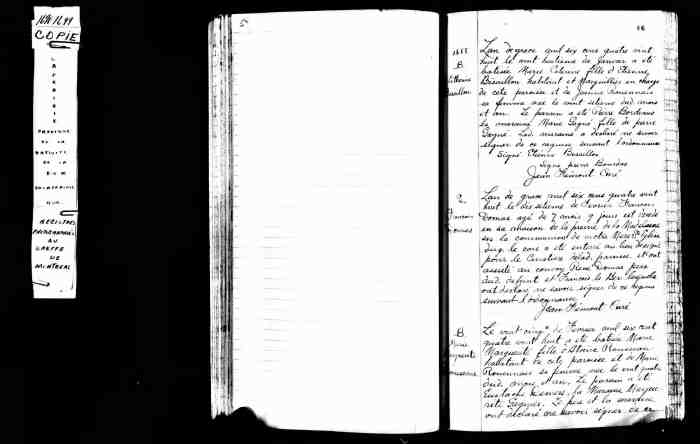 1676-1699
COPIE
LAPRAIRIE
PAROISSE
DE LA
NATIVITÉ
DE LA
REGISTRES
PHOTOGRAPHIÉS
AU
GREFFE
DE
MONTREAL
5
16
1688
B.
L'an de grace mil six cens quatre vint
huit le vint huitieme de Janvier a eté
batisée Marie Caterine fille d'Etienne
Bisaillon habitant et Marguillier en charge
de cete paroisse et de Jeanne Roinnais
sa femme née le vint setieme dud. mois
et an. Le parrein a eté Pierre Bordeau
la marraine Marie Gagné fille de pierre
Gagné. Lad. maraine a declaré ne savoir
signer de ce requise suivant l'ordonnance
Signé Etienne Bisaillon
Signe pierre Bourdeau
Jean Fremont Curé
S.
François
Domas
L'an de grace mil six cens quatre vint
huit le dix setieme de Fevrier François
Domas agé de 7 mois 9 jours est decedé
en sa maison de la prairie de la Madelaine
en la communion de notre Mere Ste Eglise
duq. le cors a eté enterré au lieu designé
pour le Cimetiere de lad. paroisse. et ont
assisté au convoy René Domas pere
dud. defunt et Francois le Ber lesquels
ont declaré ne savoir signer de ce requis
suivant l'ordonnance
Jean Fremont Curé
B.
Marie
Marguerite
Le vint cinq de Fevrier mil six cent
quatre vint huit a eté batisée Marie
Marguerite fille d'Antoine Rousseau
habitant de cete paroisse et de Marie
Roinnais sa femme née le vint quatre
dud. mois et an. Le parrein a eté
Eustache la Marraine Margue
rite Gagnier. Le pere et la marraine
ont declaré ne savoir signer de ce